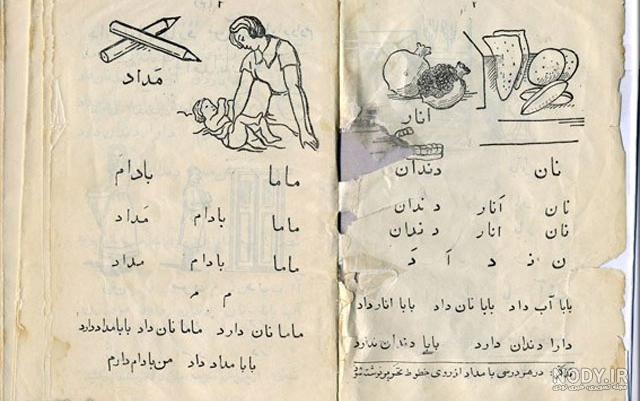 انار
نان دندان
نان انار دندان
نان انار دندان
ن د
بابا آب داد بابا نان داد بابا انار داد
دارا دندان دارد بابا دندان ندارد
در هر درسی با مداد از روی خطوط
مَداد
ماما بادام
ماما بادام مَداد
ماما بادام مداد
م مـ
ماما نان دارد ماما نان داد بابا مداد دارد
بابا مداد داد من بادام دارم
NODY.IR